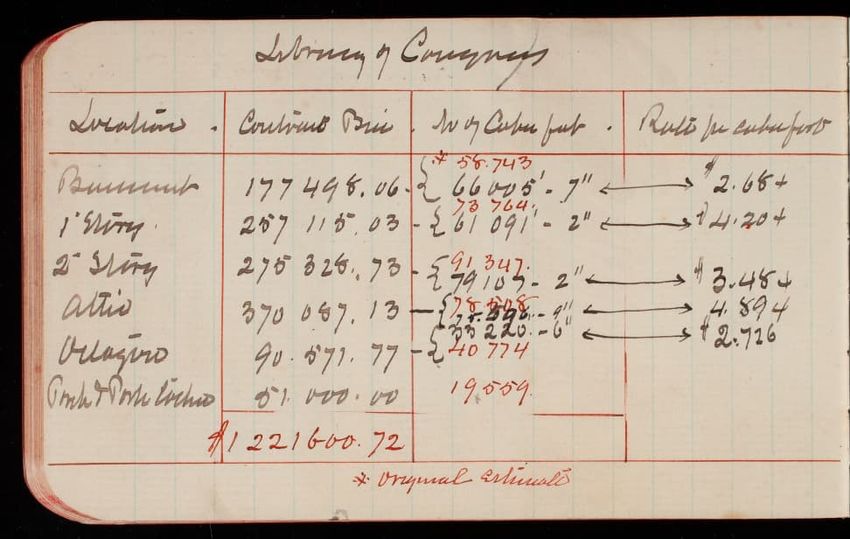 Library of Congress
Location . Contract Price . No of Cubic feet . Rate per cubic foot
* 58.743
Basement 177 498.06 - { 66 005' - 7" ⟷ $ 2.68+
73 764.
1st Story 257 115.03 - { 61 091' - 2" ⟷ $ 4.20+
91 347.
2d Story 275 328.73 - { 79 107 - 2" ⟷ $ 3.48+
78 508
Attic 370 087.13 - { - 9" ⟷ 4.894
33 220. - 6" ⟷ $ 2.726
Octagon 90.571.77 - { 40 774
Porch & Porte Cochere 51.000.00 19.559.
$1 221600.72
* Original estimate